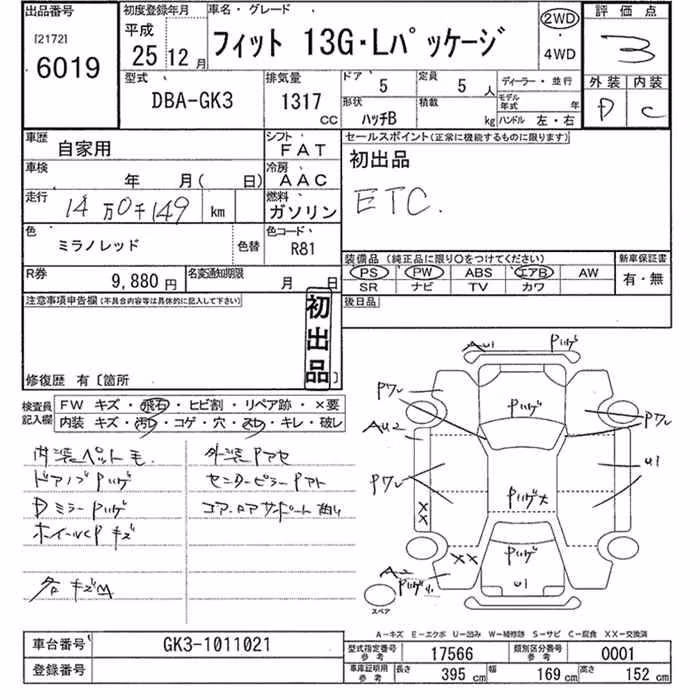 出品番号
[2172]
6019
初度登録年月
平成
25 12月
車名・グレード
フィット 13G・Lパッケージ
2WD
・
4WD
評価点
3
外装 内装
D C
型式
DBA-GK3
排気量
1317
CC
ドア
5
定員
5人
形状
ハッチB
積載
kg
ディーラー・並行
モデル年式 年
ハンドル 左・右
車歴
自家用
シフト
FAT
車検
年 月( 日)
冷房
AAC
走行
14万0千149 km
燃料
ガソリン
色
ミラノレッド
色替
色コード
R81
R券
9,880円
名変通知期限
月 日
セールスポイント(正常に機能するものに限ります)
初出品
ETC.
装備品(純正品に限り○をつけてください)
PS PW ABS エアB AW
SR ナビ TV カワ
新車保証書
有・無
後日品
注意事項申告欄(不具合内容等は具体的に記入して下さい)
初出品
修復歴 有〔箇所 〕
検査員記入欄
FW キズ・飛石・ヒビ割・リペア跡・×要
内装 キズ・汚レ・コゲ・穴・スレ・キレ・破レ
内装ペット毛
ドアノブPハゲ
DミラーPハゲ
ホイールCPキズ
各キズM
外装Pアセ
センターピラーPアト
コア・ロアサポート曲り
AU1 Pハゲ
Pワレ
Pハゲ
Pワレ
AU2
Pワレ
U1
Pハゲ大
XX
XX
Pハゲ
A2
U1
スペア
A-キズ E-エクボ U-凹み W-補修跡 S-サビ C-腐食 XX-交換済
車台番号
GK3-1011021
登録番号
型式指定番号 参考
17566
類別区分番号 参考
0001
車庫証明用 参考
長さ 395 cm
幅 169 cm
高さ 152 cm